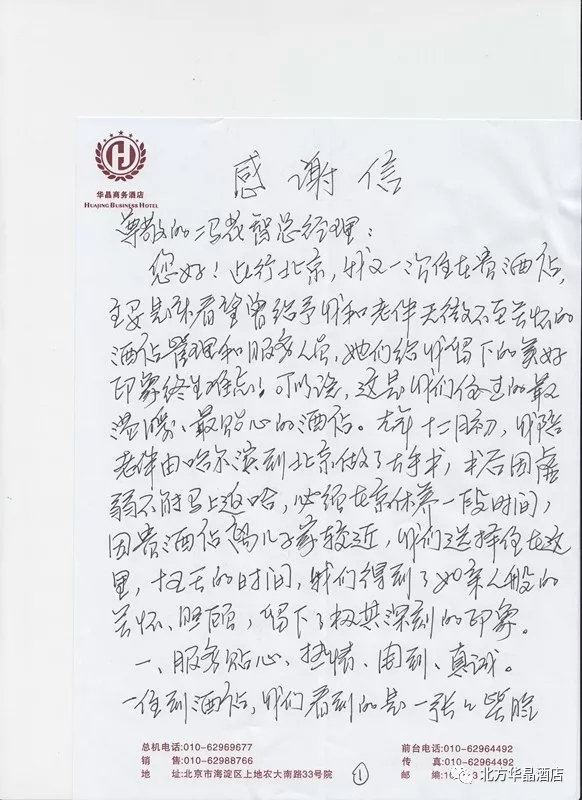 华晶商务酒店
HUAJING BUSINESS HOTEL
感谢信
尊敬的冯总经理：
您好！此行北京，我又一次住在贵酒店，
主要是来看望曾给予我和老伴无微不至关怀的
酒店管理和服务人员，她们给我留下的美好
印象终生难忘！可以说，这是我们住过的最
温暖、最贴心的酒店。去年十二月初，我陪
老伴由哈尔滨到北京做了大手术，术后因虚
弱不能马上返哈，必须在京休养一段时间，
因贵酒店离儿子家较近，我们选择住在这
里，的时间，我们得到了如亲人般的
关怀、照顾，留下了极其深刻的印象。
一、服务贴心、热情、周到、真诚。
一住到酒店，我们看到的是一张々笑脸
总机电话:010-62969677
销 售:010-62988766
地 址:北京市海淀区上地农大南路33号院
前台电话:010-62964492
传 真:010-62964492
邮 编:10
①
北方华晶酒店